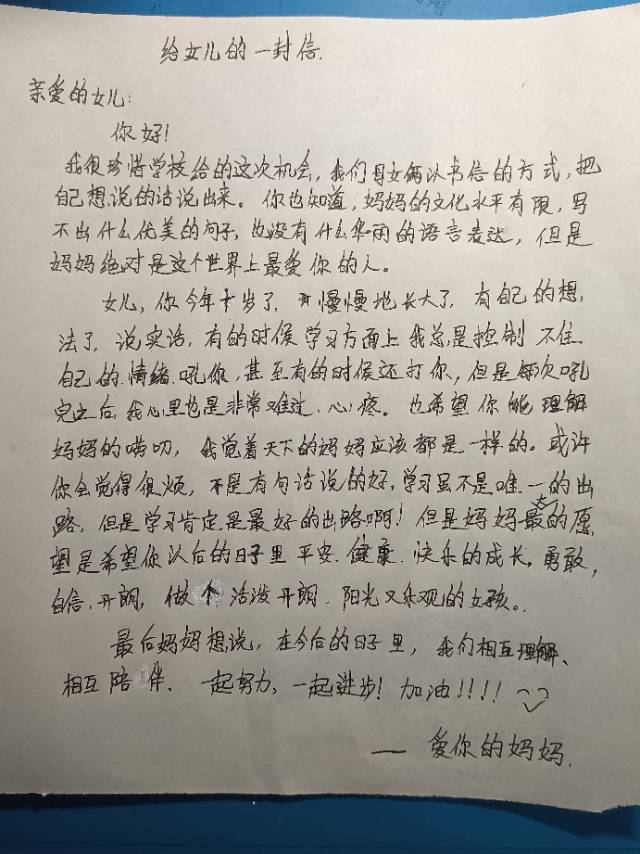 给女儿的一封信.
亲爱的女儿:
你好!
我很珍惜学校给的这次机会, 我们母女俩以书信的方式, 把
自己想说的话说出来。你也知道, 妈妈的文化水平有限, 写
不出什么优美的句子, 也没有什么华丽的语言表达, 但是
妈妈绝对是这个世界上最爱你的人。
女儿, 你今年十岁了, 慢慢地长大了, 有自己的想,
法了, 说实话, 有的时候学习方面上我总是控制不住
自己的情绪吼你, 甚至有的时候还打你, 但是每次吼
完之后, 我心里也是非常难过、心疼。也希望你能理解
妈妈的唠叨, 我觉着天下的妈妈应该都是一样的。或许
你会觉得很烦, 不是有句话说的好, 学习虽不是唯一的出
路, 但是学习肯定是最好的出路啊! 但是妈妈最大的愿
望是希望你以后的日子里平安、健康、快乐的成长, 勇敢,
自信、开朗, 做个活泼开朗、阳光又乐观的女孩。
最后妈妈想说, 在今后的日子里, 我们相互理解、
相互陪伴、一起努力, 一起进步! 加油!!!!
—— 爱你的妈妈.